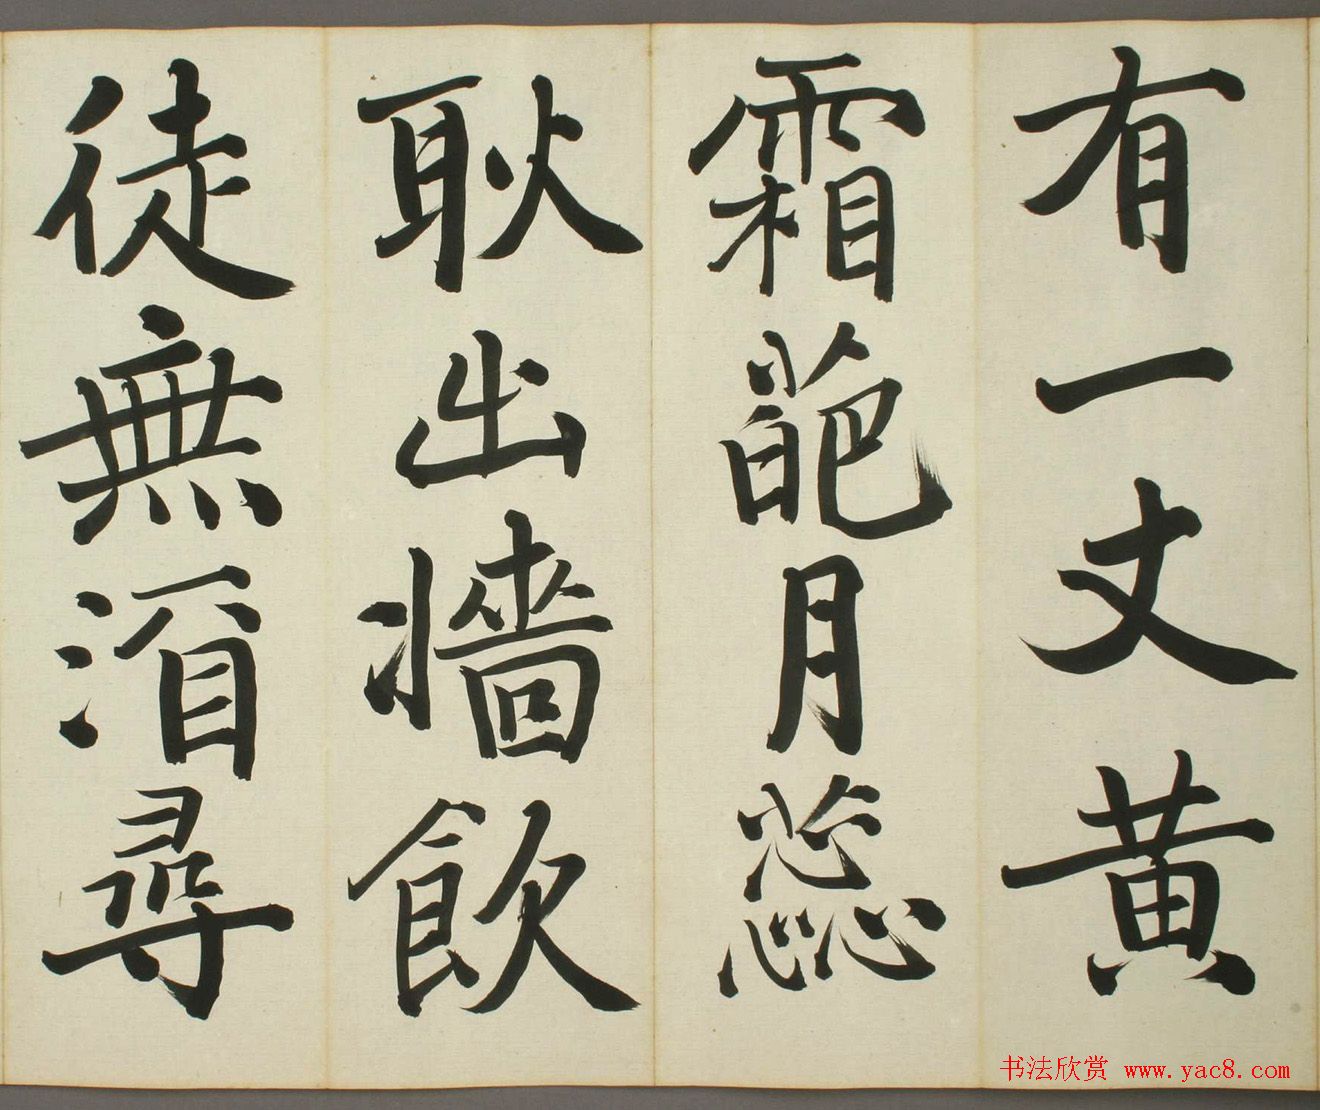 有一丈黄
霜葩月蕊
耿出墻飲
徒無濵尋
书法欣赏 www.yac8.com